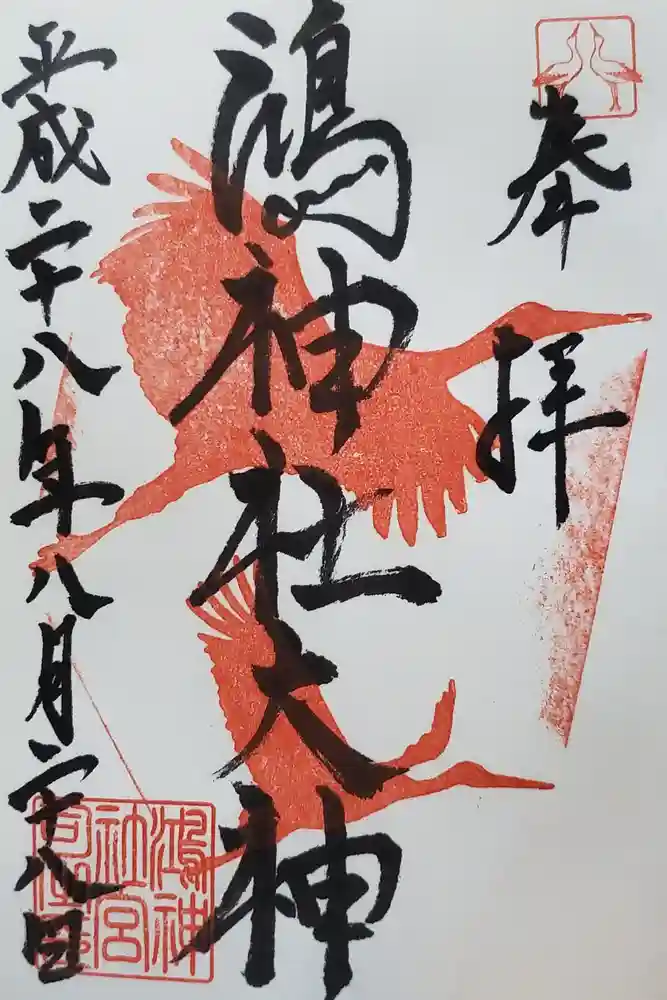 奉拝
鴻神社大神
平成二十八年八月二十八日
鴻神社宮司之印